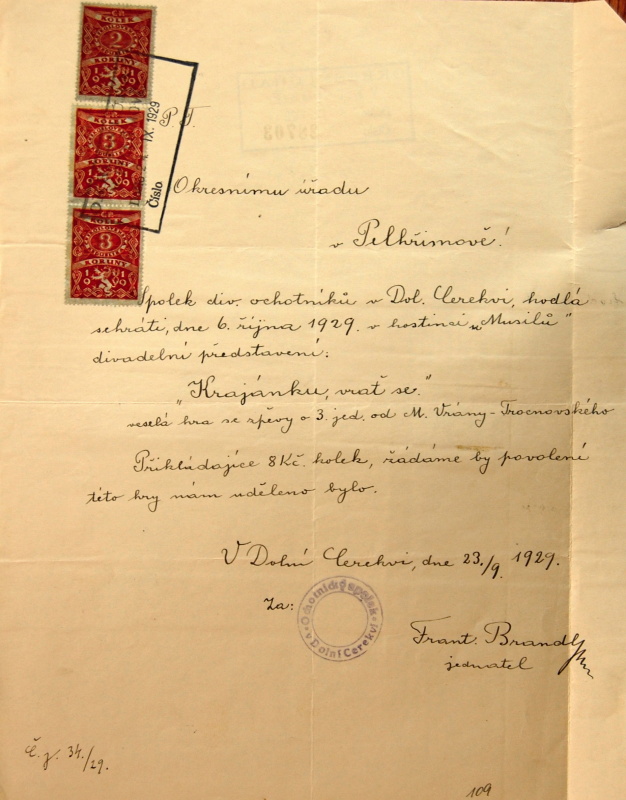 ČR.
KOLEK
2
KORUNY
1919
ČR.
KOLEK
3
KORUNY
1919
ČR.
KOLEK
3
KORUNY
1919
IX. 1929
Číslo
P. T.
Okresnímu úřadu
v Pelhřimově!
Spolek div. ochotníků v Dol. Cerekvi, hodlá
sehráti, dne 6. října 1929. v hostinci „Musilů"
divadelní představení:
„Krajánku, vrať se."
veselá hra se zpěvy o 3. jed. od M. Vrány-Trocnovského
Přikládajíce 8 Kč. kolek, žádáme by povolení
této hry nám uděleno bylo.
V Dolní Cerekvi, dne 23./9. 1929.
Za:
Ochotnický spolek
v Dolní Cerekvi
Frant. Brandl
jednatel
Č. j. 34./29.
109